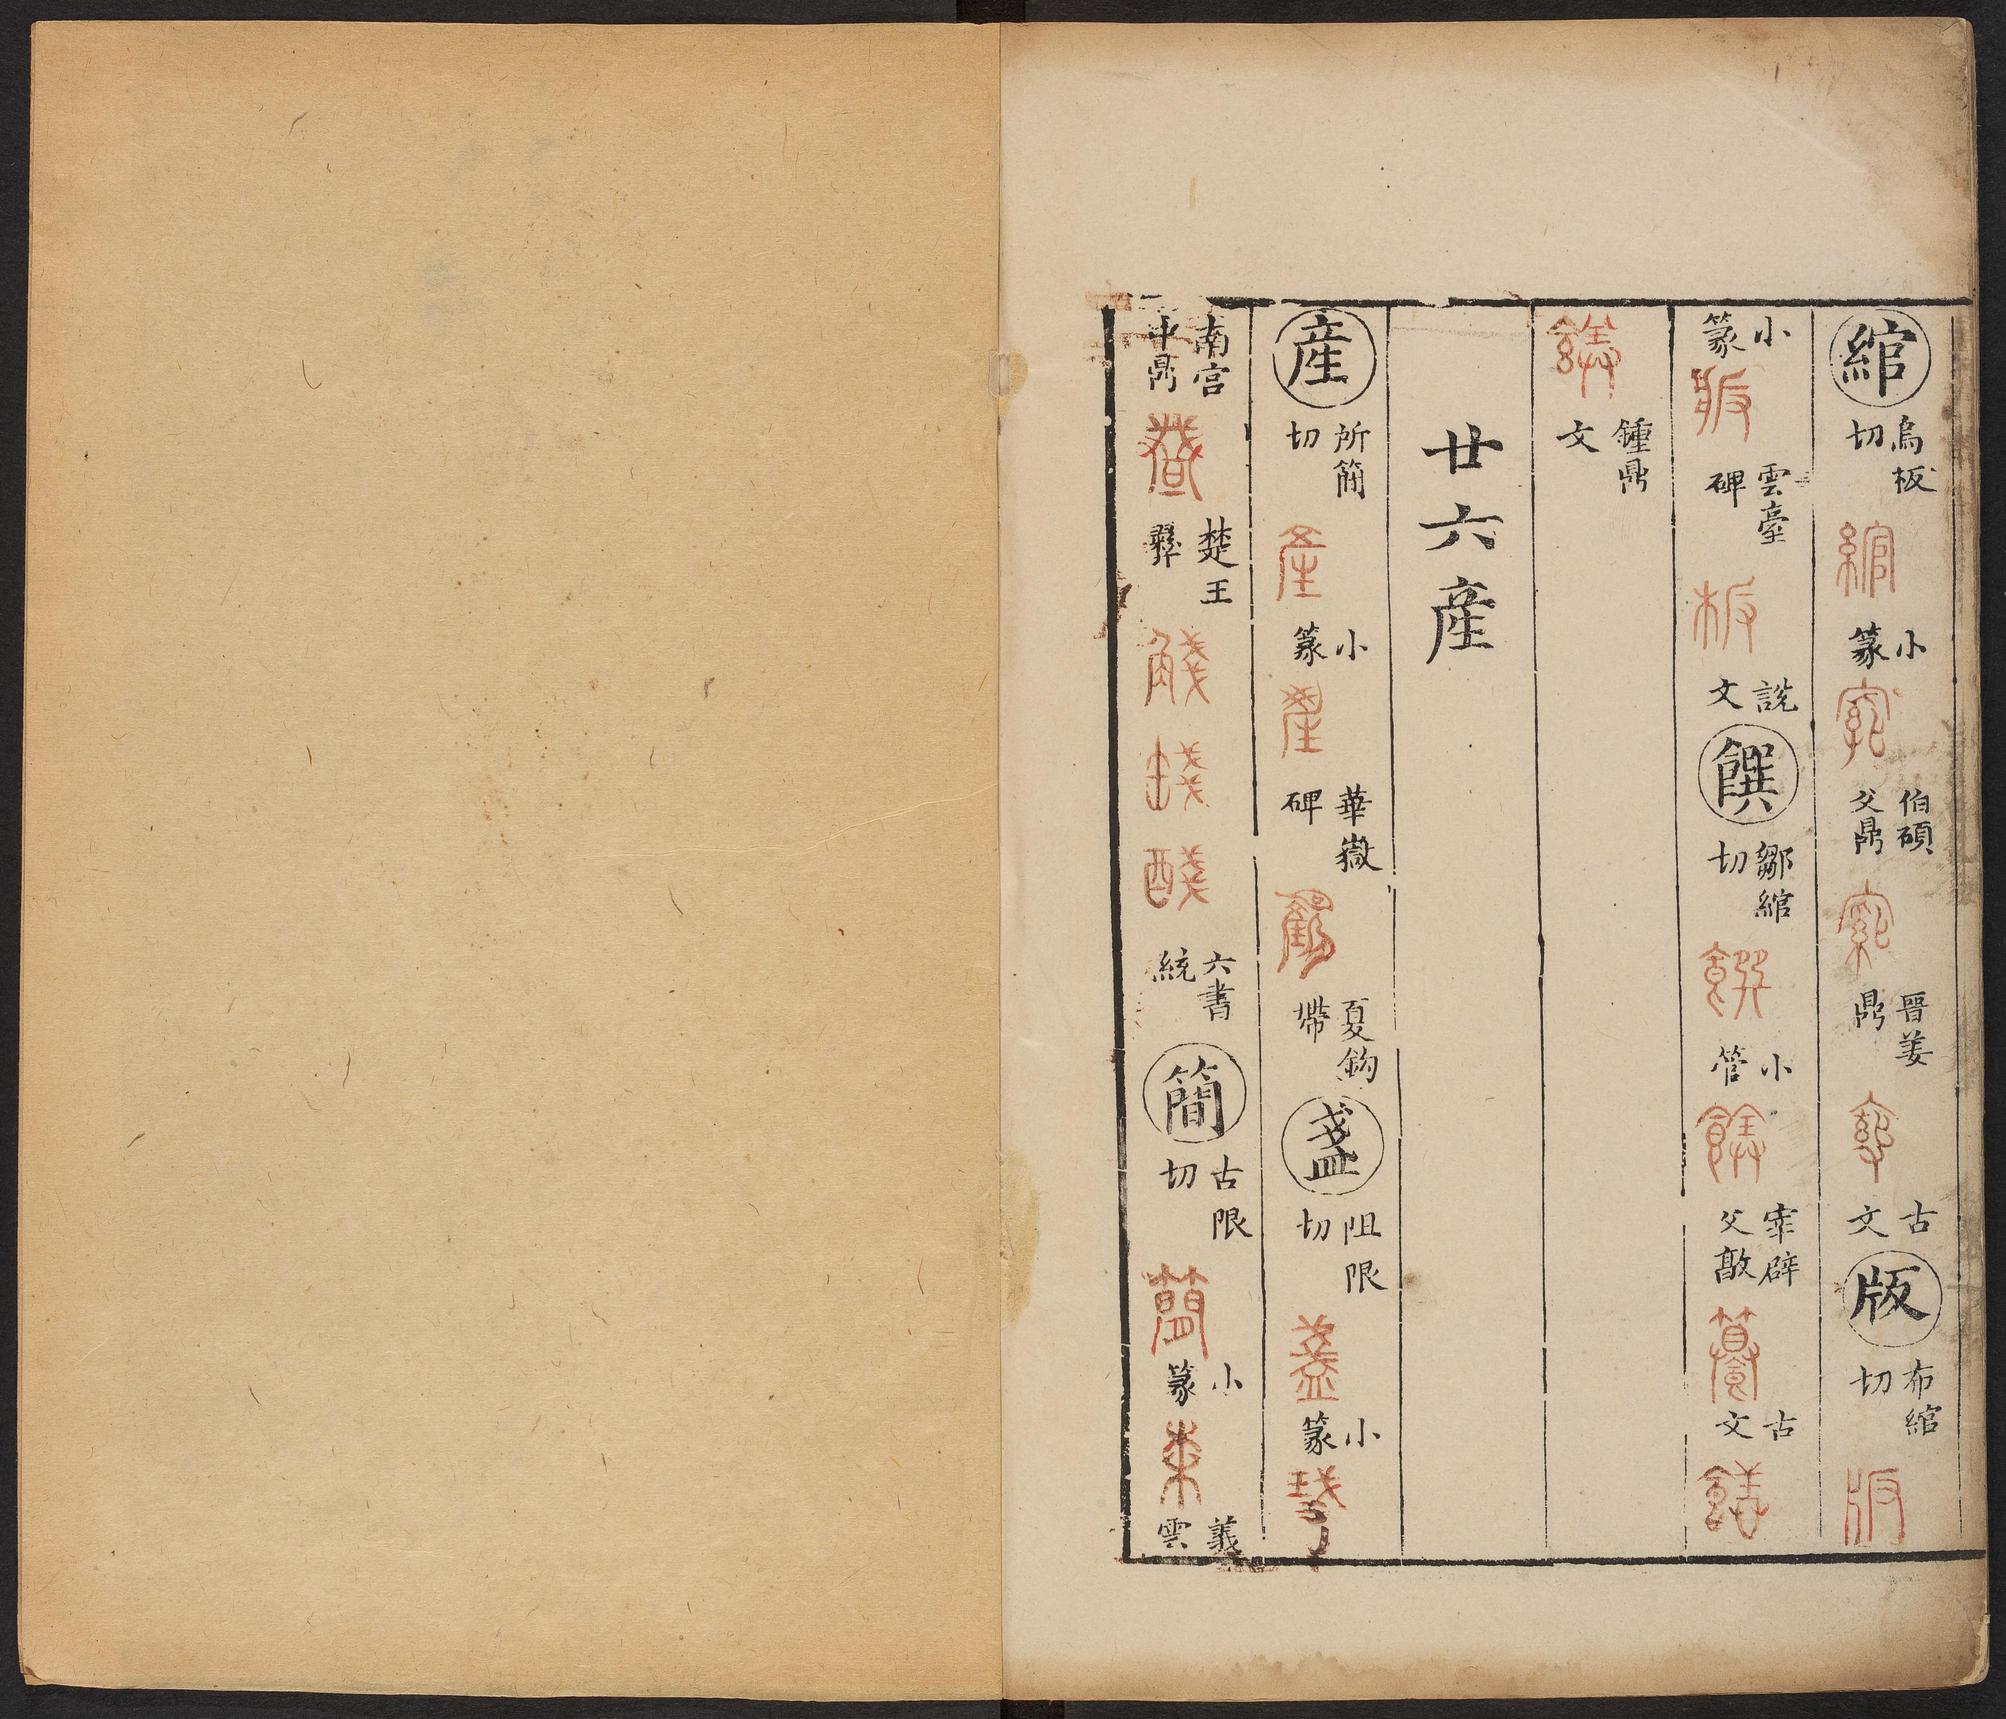 綰 烏板切 綰 小篆 伯碩父鼎 晉姜鼎 古文 版 布綰切 版
小篆 雲臺碑 板 說文 饌 鄒綰切 饌 小管 宰辟父敦 古文
鍾鼎文
廿六產
產 所簡切 產 小篆 產 華嶽碑 夏鈎帶 盞 阻限切 盞 小篆
南宮中鼎 楚王彝 六書統 簡 古限切 簡 小篆 義雲